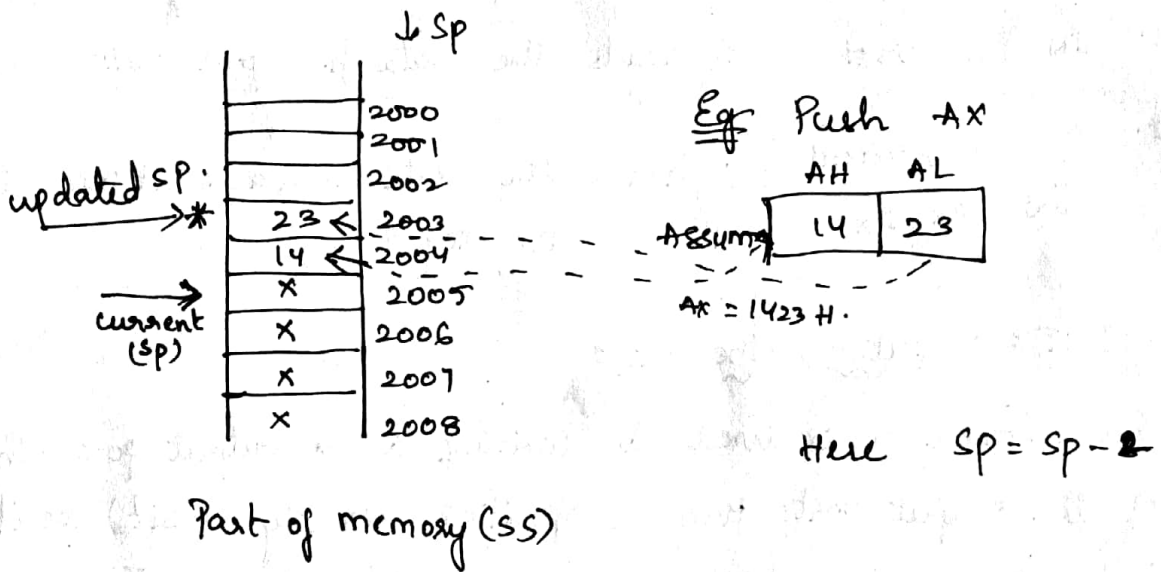 ↓ SP
2000
2001
2002
updated SP.
* 23 2003
14 2004
x 2005
current
(SP)
x 2006
x 2007
x 2008
Part of memory (SS)
Eg Push AX
AH AL
Assume 14 23
AX = 1423 H.
Here SP = SP - 2